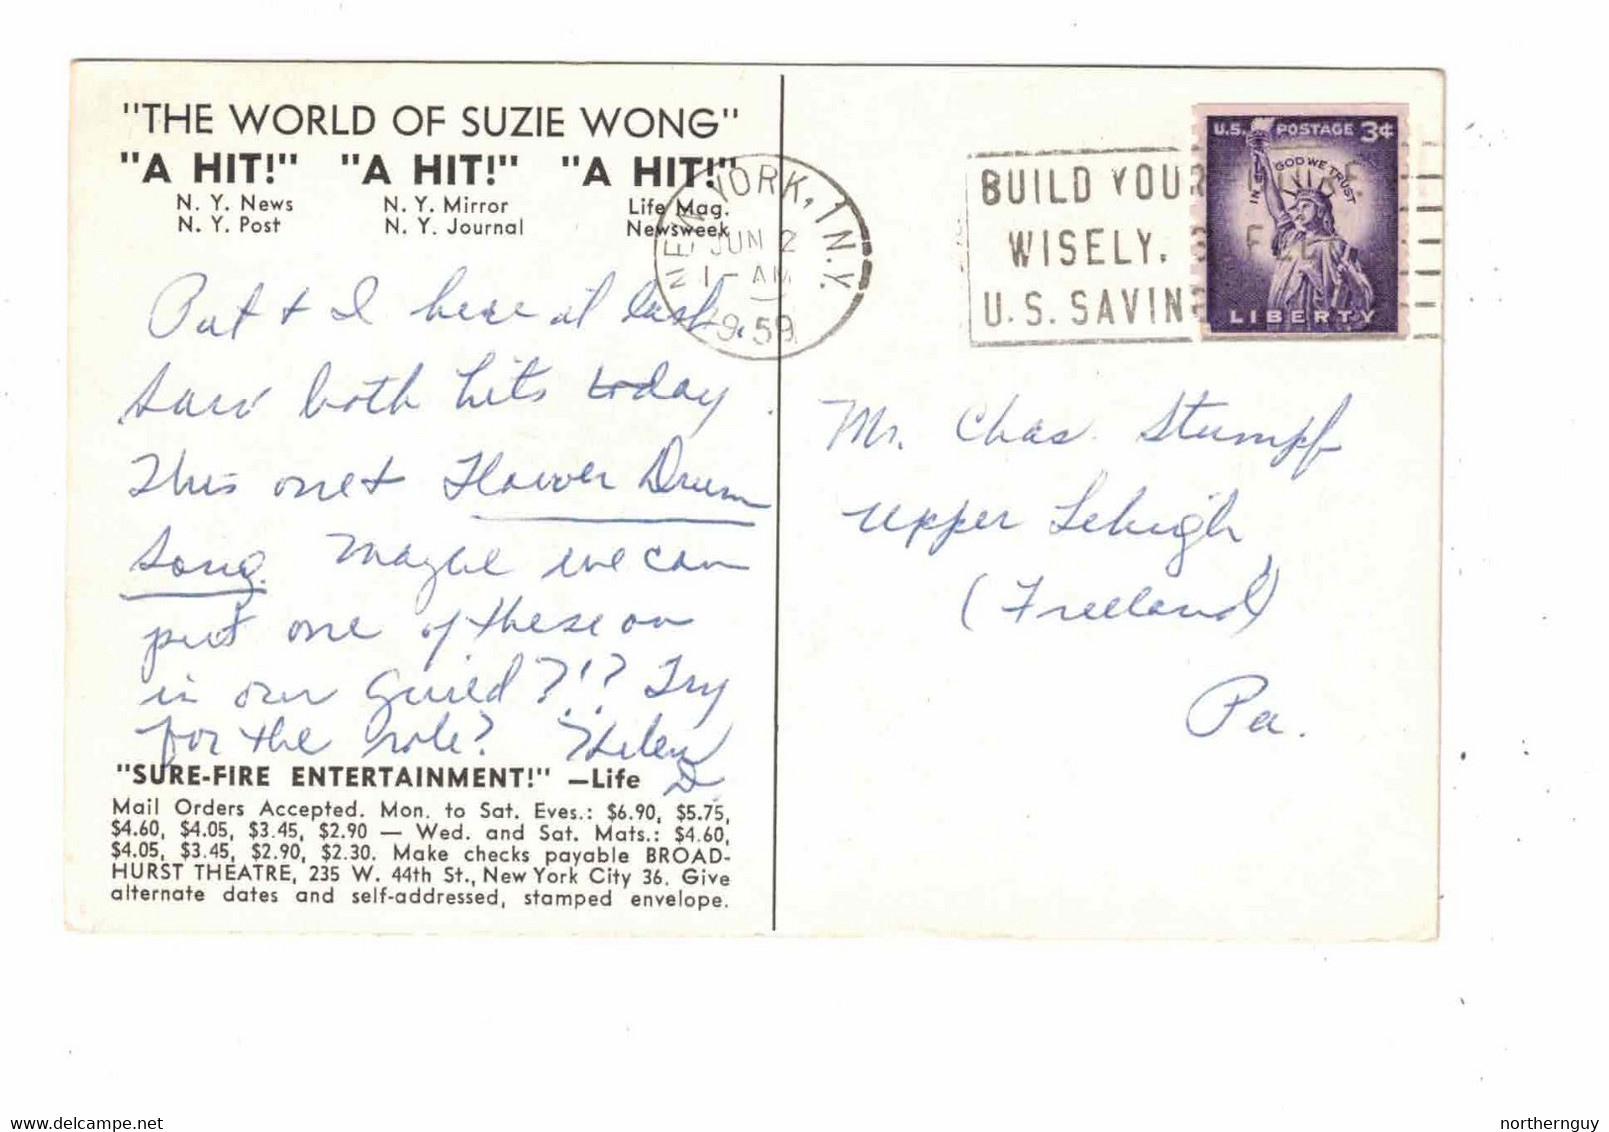 "THE WORLD OF SUZIE WONG"
"A HIT!" "A HIT!" "A HIT!"
N. Y. News N. Y. Mirror Life Mag.
N. Y. Post N. Y. Journal Newsweek
Pat + I here at last.
Saw both hits today.
This one + Flower Drum
Song. Maybe we can
put one of these on
in our Guild?!? Try
for the role? Helen
D.
"SURE-FIRE ENTERTAINMENT!" —Life
Mail Orders Accepted. Mon. to Sat. Eves.: $6.90, $5.75,
$4.60, $4.05, $3.45, $2.90 — Wed. and Sat. Mats.: $4.60,
$4.05, $3.45, $2.90, $2.30. Make checks payable BROAD-
HURST THEATRE, 235 W. 44th St., New York City 36. Give
alternate dates and self-addressed, stamped envelope.
NEW YORK, N.Y.
JUN 2
1 - AM
1959
BUILD YOUR
WISELY,
U.S. SAVIN
U.S. POSTAGE 3¢
IN GOD WE TRUST
LIBERTY
Mr. Chas. Stumpf
Upper Lehigh,
(Freeland)
Pa.
northernguy